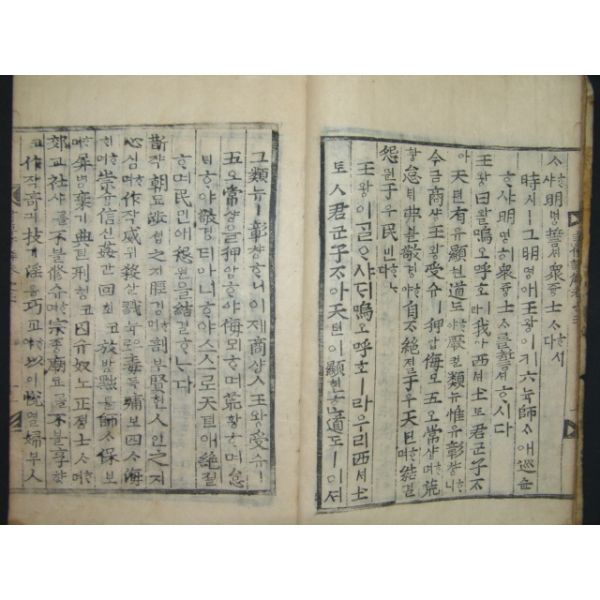 ᄉᆞᄒᆞ샤明명誓셔衆즁士ᄉᆞᄒᆞ시다
時시ㅣ그明명애王왕이키六뉵師ᄉᆞ애巡슌
ᄒᆞ샤明명히衆즁士ᄉᆞ를誓셔ᄒᆞ시다
王왕曰왈嗚오呼호ㅣ라我아西셔土토君군子ᄌᆞ
아天텬有유顯현道도ᄒᆞ야厥궐類뉴惟유彰챵ᄒᆞ니
今금商샹王왕受슈ㅣ狎압侮모五오常샹ᄒᆞ며荒황
怠ᄐᆡ弗블敬경ᄒᆞ야自ᄌᆞ絶졀于우天텬ᄒᆞ며結결
怨원于우民민ᄒᆞᄂᆞ다
王왕이ᄀᆞᆯᄋᆞ샤ᄃᆡ嗚오呼호ㅣ라우리西셔土
토ㅅ君군子ᄌᆞ아天텬이顯현ᄒᆞᆫ道도ㅣ이셔
그類뉴ㅣ彰챵ᄒᆞ니이제商샹ㅅ王왕受슈ㅣ
五오常샹을狎압ᄒᆞ야侮모ᄒᆞ며荒황ᄒᆞ며怠
ᄐᆡᄒᆞ야敬경티아니ᄒᆞ야스스로天텬애絶졀
ᄒᆞ며民민애怨원을結결ᄒᆞᄂᆞ다
斮쟉朝됴涉셥之지脛경ᄒᆞ며剖부賢현人인之지
心심ᄒᆞ며作작威위殺살戮륙으로毒독痡보四ᄉᆞ海ᄒᆡ
ᄒᆞ며崇슝信신姦간回회ᄒᆞ고放방黜튤師ᄉᆞ保보
ᄒᆞ며屛병棄기典뎐刑형ᄒᆞ고囚슈奴노正졍士ᄉᆞᄒᆞ며
郊교社샤를不블修슈ᄒᆞ며宗종廟묘를不블享향
ᄒᆞ고作작奇긔技기淫음巧교ᄒᆞ야以이悅열婦부人